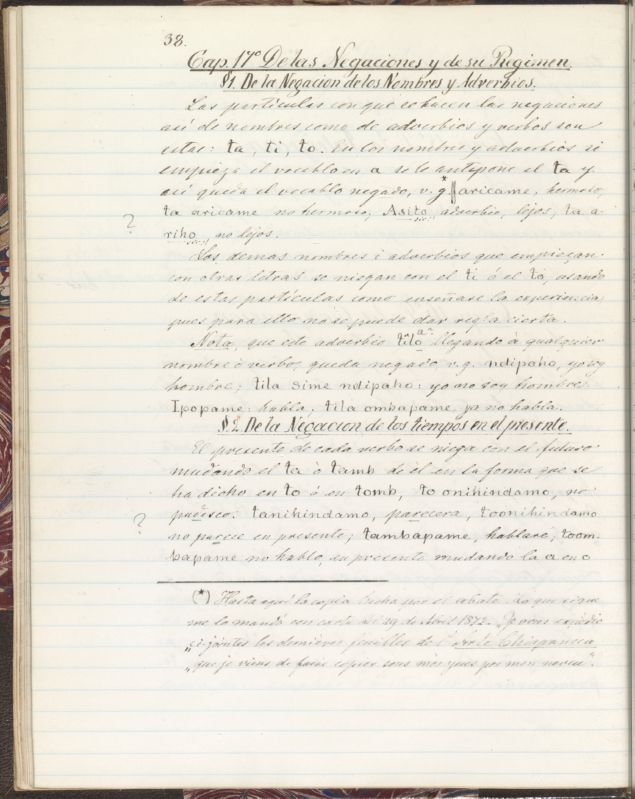 38.
Cap. 17º De las Negaciones y de su Regimen.
§1. De la Negacion de los Nombres y Adverbios.
Las particulas con que se hacen las negaciones
asi de nombres como de adverbios y verbos son
estas: ta, ti, to. En los nombres y adverbios si
empieza el vocablo en a se le antepone el ta y
asi queda el vocablo negado, v. g.* aricame, hermoso,
ta aricame no hermoso, Asito, adverbio, lejos, ta a-
? riho, no lejos.
Los demas nombres i adverbios que empiezan
con otras letras se niegan con el ti ó el to, usando
de estas particulas como enseñare la experiencia
pues para ello no se puede dar regla cierta.
Nota, que este adverbio tilo a llegando á cualquier
nombre ó verbo, queda negado v. g. ndipaho, yo soy
hombre; tila sime ndipaho: yo no soy hombre
Ipopame: habla, tila ombapame, ya no habla.
§2. De la Negacion de los tiempos en el presente.
El presente de cada verbo se niega con el futuro
mudando el ta ó tamb de él en la forma que se
ha dicho en to ó en tomb, to onihindamo, no
? paresco: tanihindamo, parecera, toonihindamo
no parece en presente; tambapame, hablaré; toom-
bapame no hablo, en presente mudando la a en o
(*) Hasta aqui la copia hecha por el abate. Lo que sigue
me lo mandó con carta del 29 de Abril 1872. "Je vous expédie
„ci-joint les dernieres feuilles de
„que je viens de faire copier sous mes yeux par mon neveu".